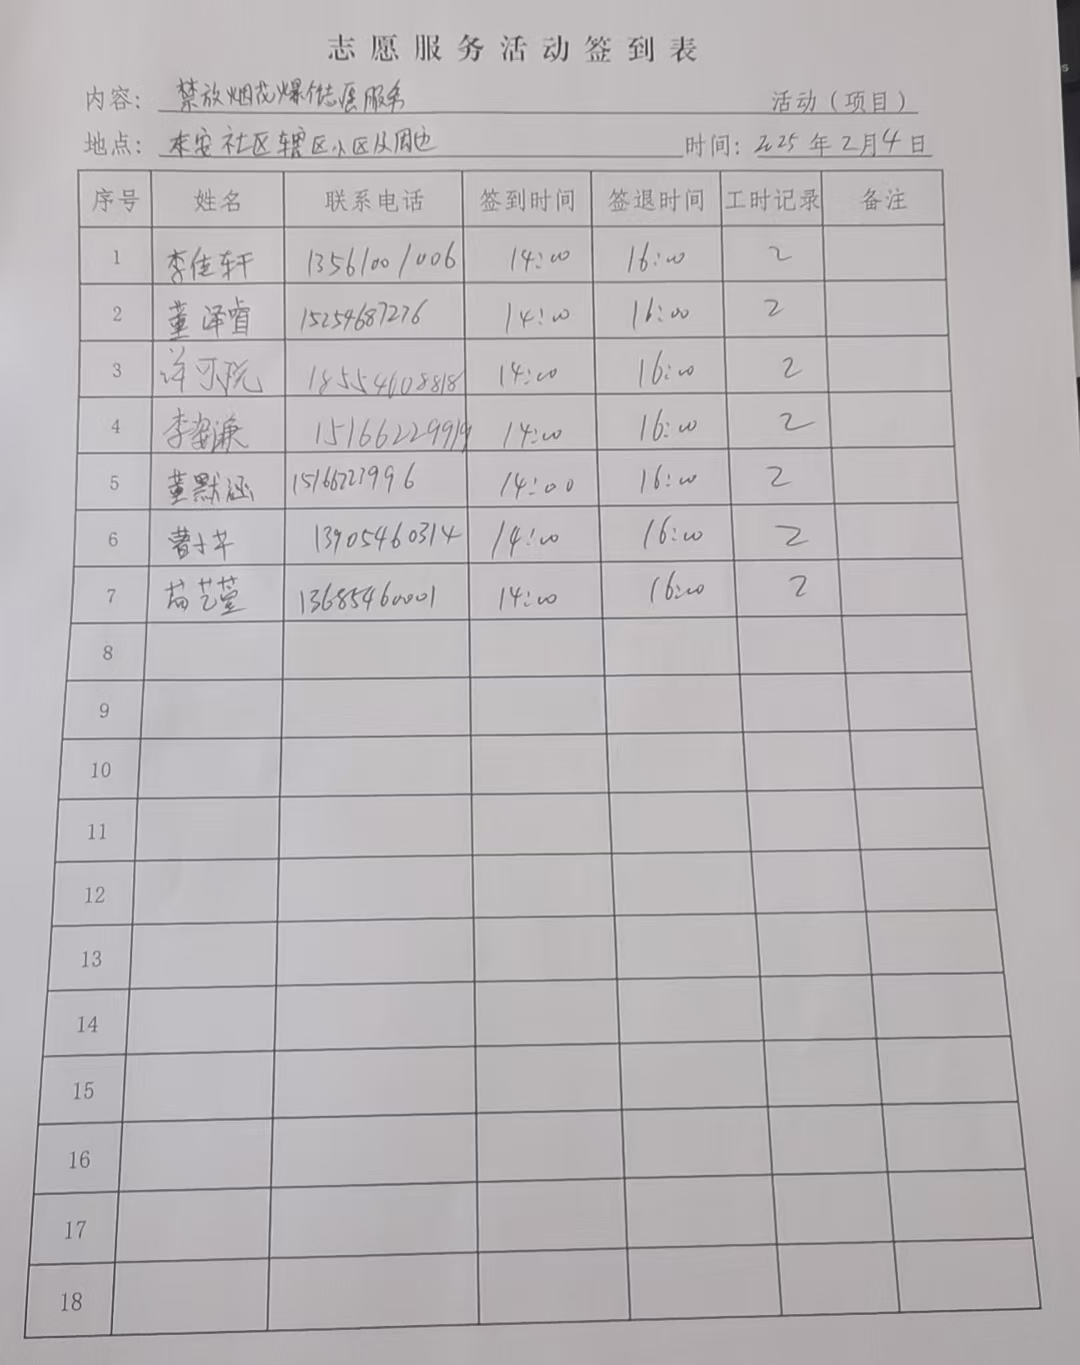 志愿服务活动签到表
内容： 禁放烟花爆竹志愿服务 活动（项目）
地点： 东安社区辖区小区及周边 时间：2025年2月4日
序号 姓名 联系电话 签到时间 签退时间 工时记录 备注
1 李佳轩 13561001006 14:00 16:00 2
2 董泽睿 15254687276 14:00 16:00 2
3 许可 18554608818 14:00 16:00 2
4 李姿谦 15166229919 14:00 16:00 2
5 董默涵 14:00 16:00 2
6 曹 13905460314 14:00 16:00 2
7 艺萱 13685460001 14:00 16:00 2
8
9
10
11
12
13
14
15
16
17
18